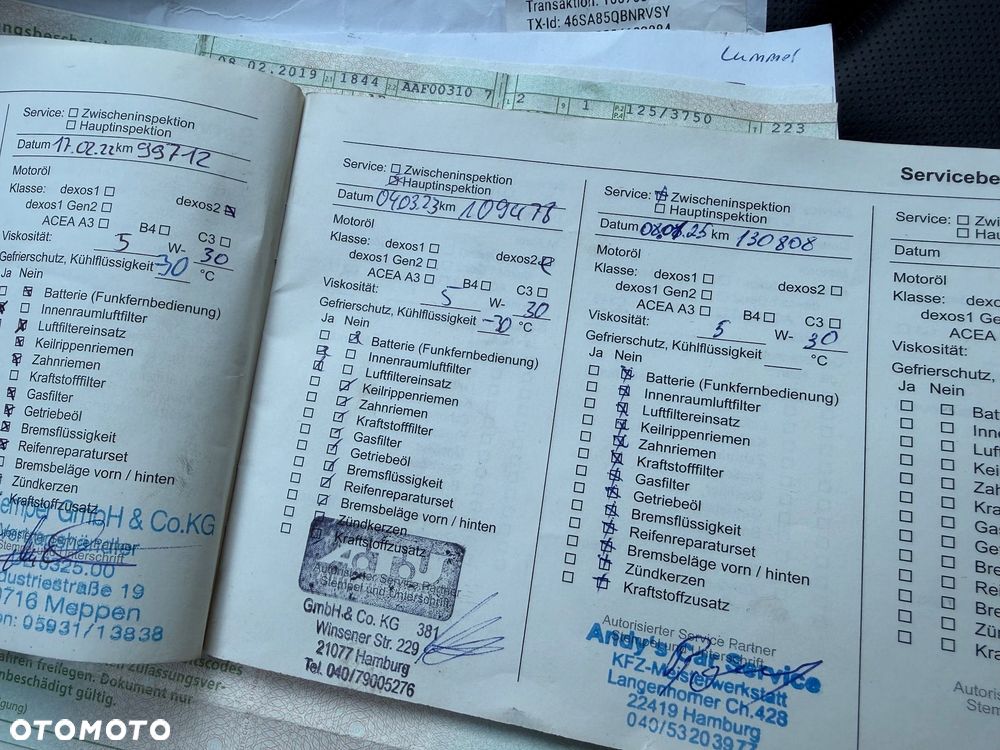 Transaktion:
TX-Id: 46SA85QBNRVSY
Lummel
08.02.2019 1844 AAF00310 7
2 9 1 125/3750 T 223
Service: Zwischeninspektion
Hauptinspektion
Datum 17.02.22 km 99712
Motoröl
Klasse: dexos1 dexos2
dexos1 Gen2
ACEA A3 B4 C3
Viskosität: 5 W- 30
Gefrierschutz, Kühlflüssigkeit -30 °C
Ja Nein
Batterie (Funkfernbedienung)
Innenraumluftfilter
Luftfiltereinsatz
Keilrippenriemen
Zahnriemen
Kraftstofffilter
Gasfilter
Getriebeöl
Bremsflüssigkeit
Reifenreparaturset
Bremsbeläge vorn / hinten
Zündkerzen
Kraftstoffzusatz
GmbH & Co.KG
0325.00
dustriestraße 19
716 Meppen
on: 05931/13838
Service: Zwischeninspektion
Hauptinspektion
Datum 04.03.23 km
Motoröl
Klasse: dexos1
dexos1 Gen2 dexos2
ACEA A3 B4 C3
Viskosität: 5 W- 30
Gefrierschutz, Kühlflüssigkeit -30 °C
Ja Nein
Batterie (Funkfernbedienung)
Innenraumluftfilter
Luftfiltereinsatz
Keilrippenriemen
Zahnriemen
Kraftstofffilter
Gasfilter
Getriebeöl
Bremsflüssigkeit
Reifenreparaturset
Bremsbeläge vorn / hinten
Zündkerzen
Kraftstoffzusatz
Autorisierter Service Partner
Stempel und Unterschrift
GmbH & Co. KG 381
Winsener Str. 229
21077 Hamburg
Tel. 040/79005276
Servicebe
Service: Zwischeninspektion
Hauptinspektion
Datum km 130808
Motoröl
Klasse: dexos1 dexos2
dexos1 Gen2
ACEA A3 B4 C3
Viskosität: 5 W- 30
Gefrierschutz, Kühlflüssigkeit °C
Ja Nein
Batterie (Funkfernbedienung)
Innenraumluftfilter
Luftfiltereinsatz
Keilrippenriemen
Zahnriemen
Kraftstofffilter
Gasfilter
Getriebeöl
Bremsflüssigkeit
Reifenreparaturset
Bremsbeläge vorn / hinten
Zündkerzen
Kraftstoffzusatz
Autorisierter Service Partner
Stempel und Unterschrift
Andy's Car Service
KFZ-Meisterwerkstatt
Langenhorner Ch.428
22419 Hamburg
040/5320397
Service: Zwi
Hau
Datum
Motoröl
Klasse: dexo
dexos1 Gen
ACEA
Viskosität:
Gefrierschutz,
Ja Nein
Bat
Inne
Luf
Kei
Zah
Kra
Gas
Get
Bre
Rei
Bre
Zün
Kra
Autoris
Stem
ahren freilegen. Dokument nur
nbeschädigt gültig.
OTOMOTO